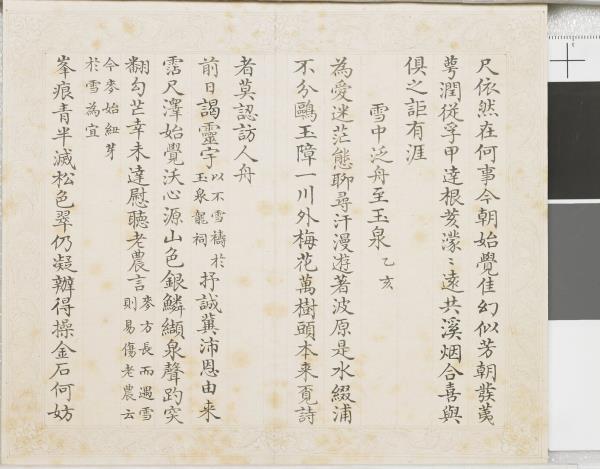 尺依然在何事今朝始覺佳幻似芳朝發荑
萼潤從孚甲達根荄濛〻遠共溪烟合喜與
俱之詎有涯
雪中泛舟至玉泉乙亥
為愛迷茫態聊尋汗漫遊著波原是水綴浦
不分鷗玉障一川外梅花萬樹頭本來覔詩
者莫認訪人舟
前日謁靈宇以不雪禱於玉泉龍祠抒誠冀沛恩由来
霑尺澤始覺沃心源山色銀鱗纈泉聲趵突
翻勾芒幸未達慰聽老農言麥方長而遇雪則易傷老農云
今麥始紐芽於雪為宜
峯痕青半滅松色翠仍凝辦得操金石何妨